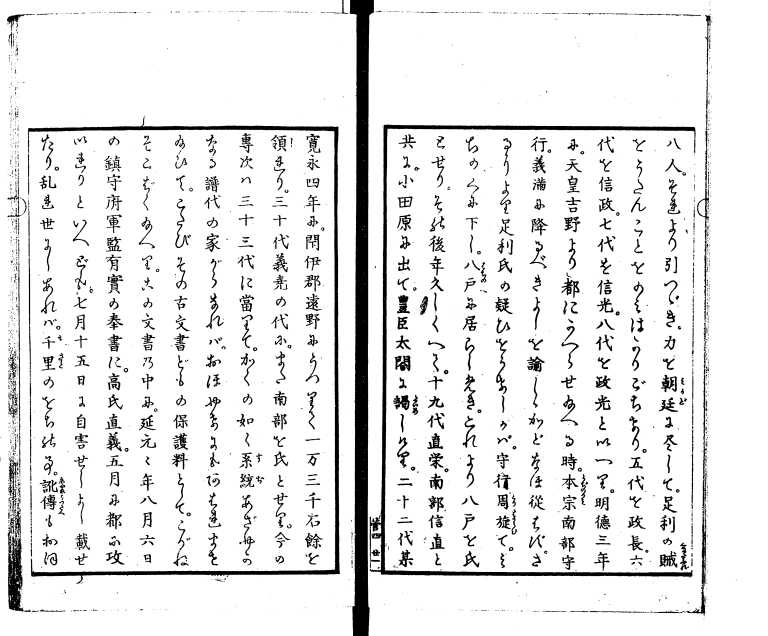 八人。それより引つゞき。力を朝廷に尽して。足利の賊
をうたんことをのみはかりごちたり。五代を政長。六
代を信政。七代を信光。八代を政光といへり。明德三年
に。天皇吉野より都にかへらせたまへる時。本宗南部守
行。義満に降るべきよしを諭しゝかどなほ従はず。さ
るより足利氏の疑ひをうけしかバ。守行周旋て。
ちのくに下し。八戸に居らしめき。これより八戸を氏
とせり。その後年久しくへて。十九代直栄。南部信直と
共に。小田原に出て。豊臣太閤に謁しけり。二十二代某
寛永四年に。閉伊郡遠野にうつりて一万三千石餘を
領せり。三十代義堯の代に。また南部を氏とせり。今の
專次ハ三十三代に當りて。かくの如く系統あざやかの
なる譜代の家がらなれバ。おほやけにも
給ひて。こたびその古文書どもの保護料として。こがね
そこばくたまへり。この文書の中に。延元々年八月六日
の鎮守府軍監有實の奉書に。高氏直義。五月に都に攻
いれりといへども。七月十五日に自害せしよし載せ
たり。乱れ世にしあれバ。千里のをちの事。訛傳も